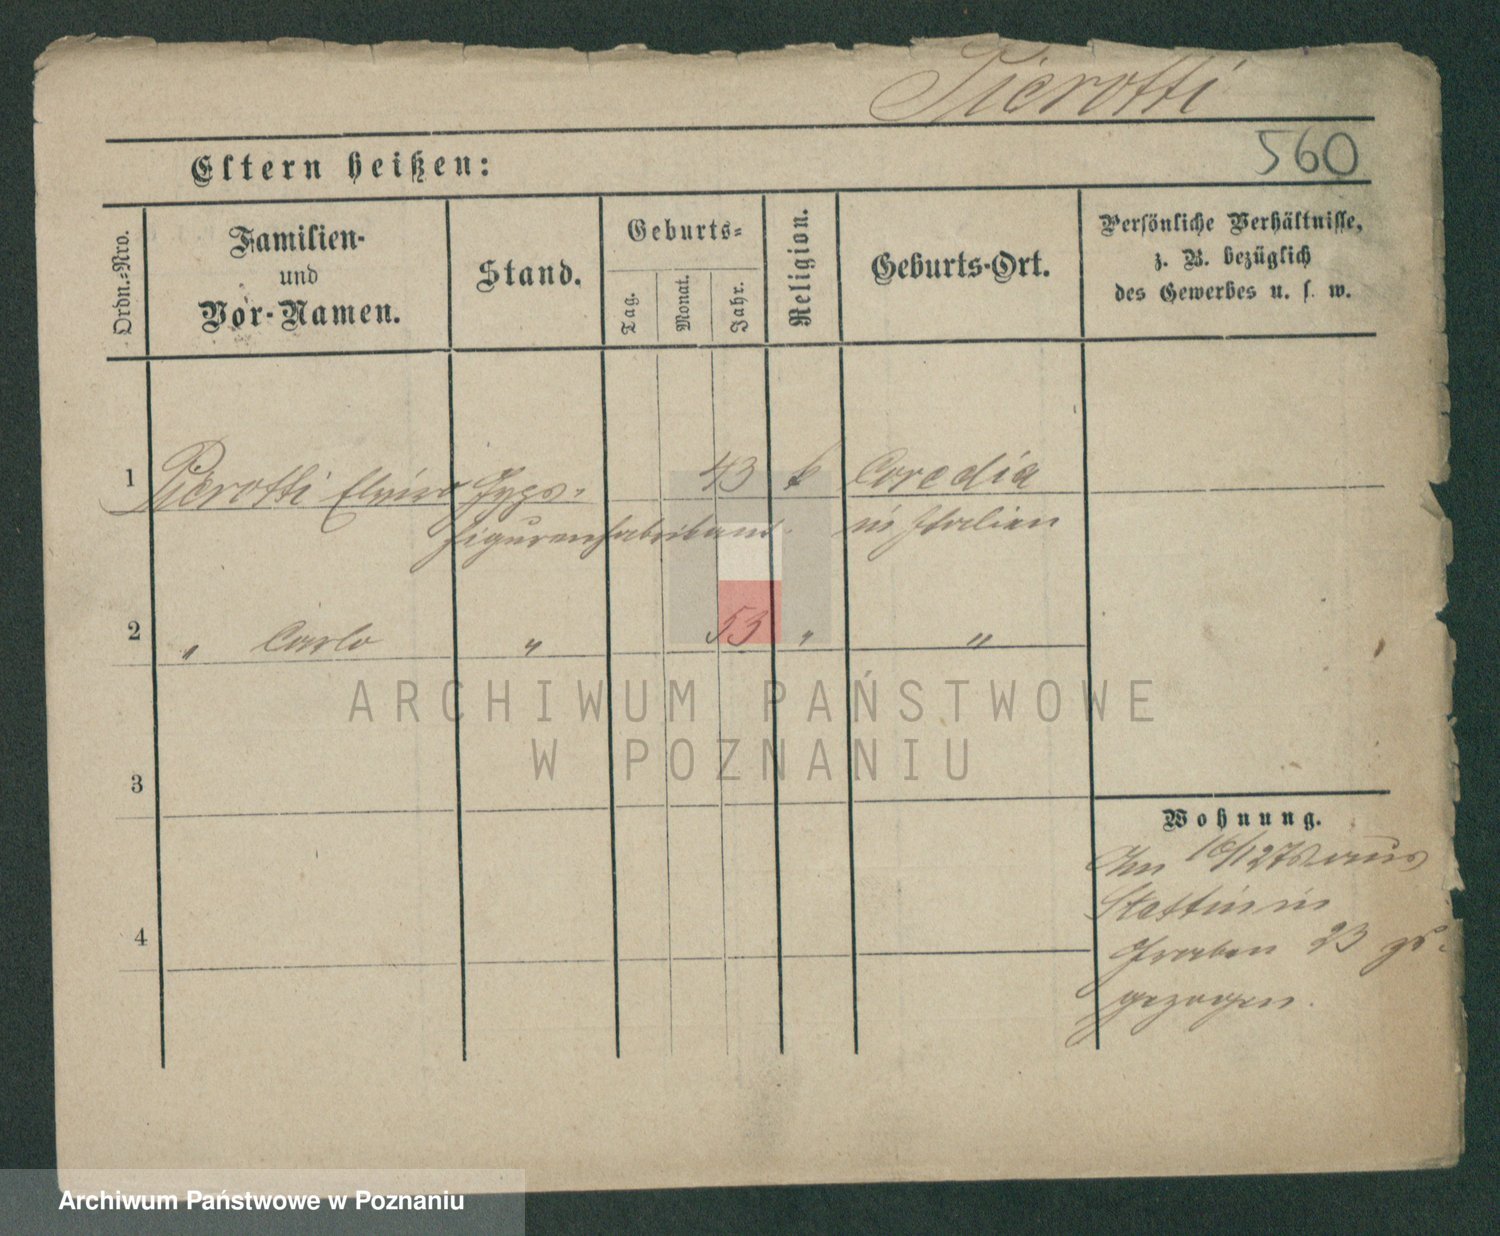 Pierotti
560
Eltern heißen:
Ordn.-Nro.
Familien-
und
Vor-Namen.
Stand.
Geburts-
Tag.
Monat.
Jahr.
Religion.
Geburts-Ort.
Persönliche Verhältnisse,
z. B. bezüglich
des Gewerbes u. s. w.
1 Pierotti Elviro Gyps- 43 k Coredia
figurenfabrikant. in Italien
2 " Carlo " 53 " "
ARCHIWUM PAŃSTWOWE
W POZNANIU
3
Wohnung.
Am 16/12 78 aus
Stettin in
4
Graben 23 zu-
gezogen.
Archiwum Państwowe w Poznaniu